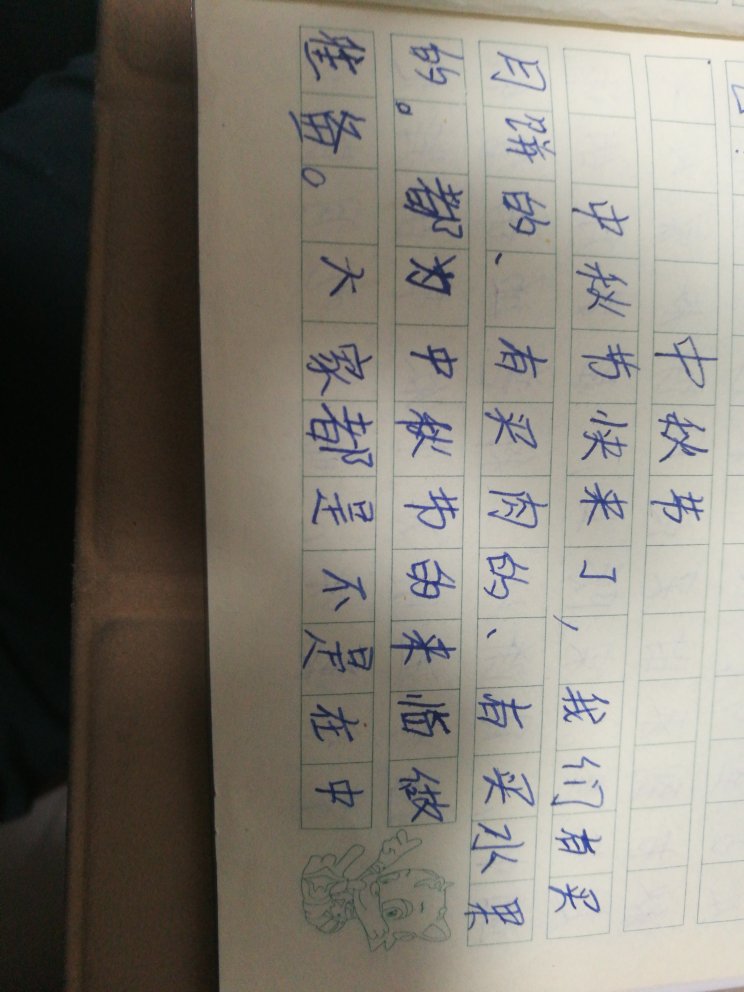 中秋节
中秋节快来了,我们有买
月饼的、有买肉的、有买水果
的。都为中秋节的来临做
准备。大家都是不是在中